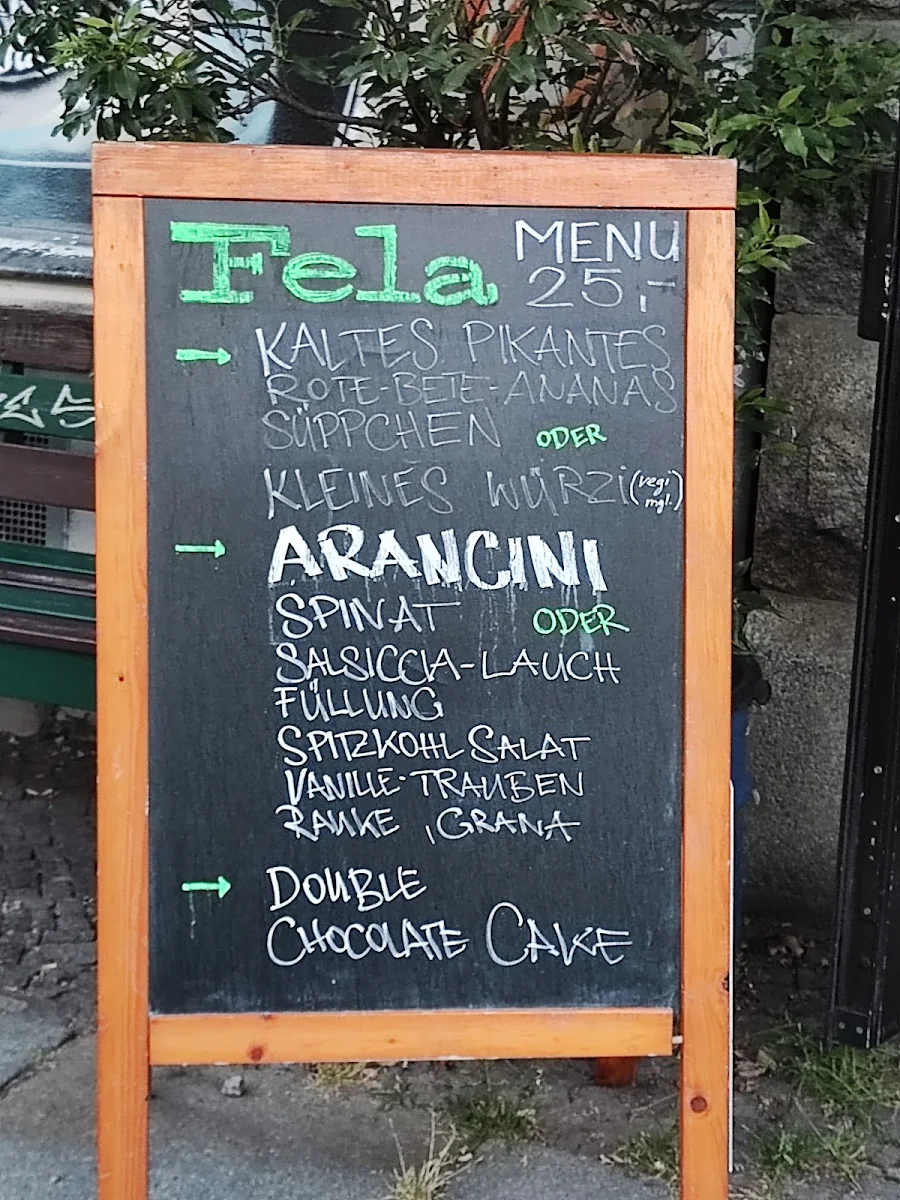 Fela MENU
25,-
→ KALTES PIKANTES
ROTE-BETE-ANANAS
SÜPPCHEN ODER
KLEINES WÜRZI (vegi mgl.)
→ ARANCINI
SPINAT ODER
SALSICCIA-LAUCH
FÜLLUNG
SPITZKOHL SALAT
VANILLE-TRAUBEN
RAUKE, GRANA
→ DOUBLE
CHOCOLATE CAKE